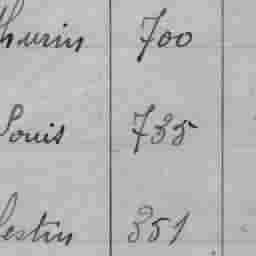 thurin 700
Louis 735
lestin 351